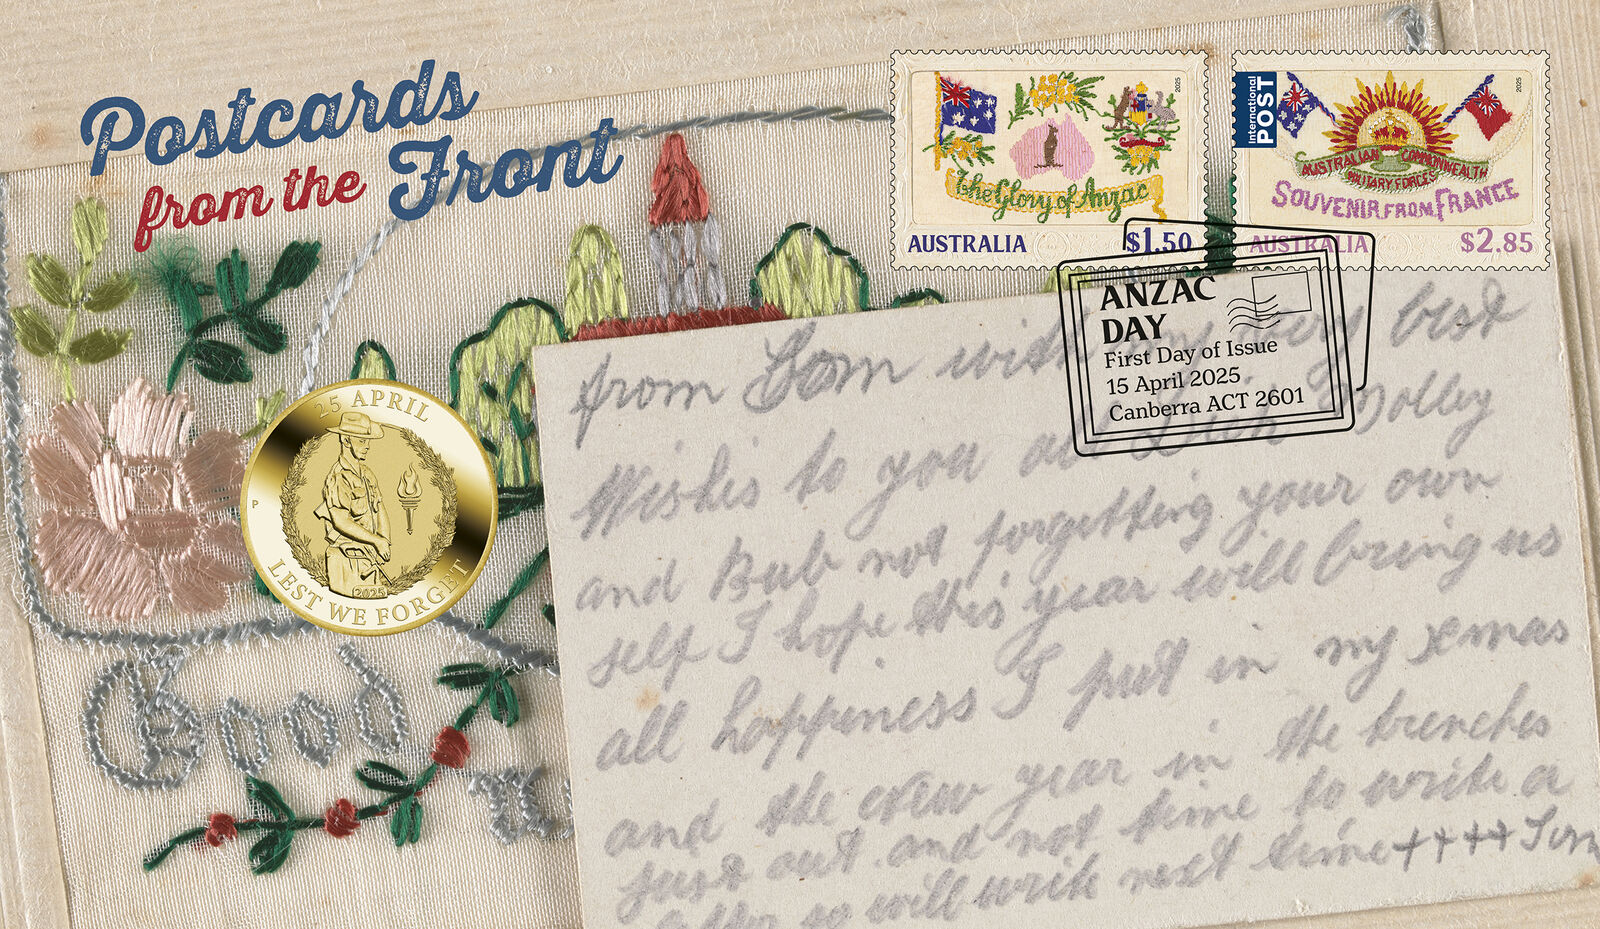 Postcards
from the Front
2025
The Glory of Anzac
AUSTRALIA $1.50
International
POST
2025
AUSTRALIAN COMMONWEALTH
MILITARY FORCES
SOUVENIR FROM FRANCE
AUSTRALIA $2.85
ANZAC
DAY
First Day of Issue
15 April 2025
Canberra ACT 2601
25 APRIL
P
2025
LEST WE FORGET
Good
from Tom with my very best
Wishes to you all Dick Molley
and Bub not forgetting your own
self I hope this year will bring us
all happiness I put in my xmas
and the new year in the trenches
just out and not time to write a
so will write next time ++++ Tom